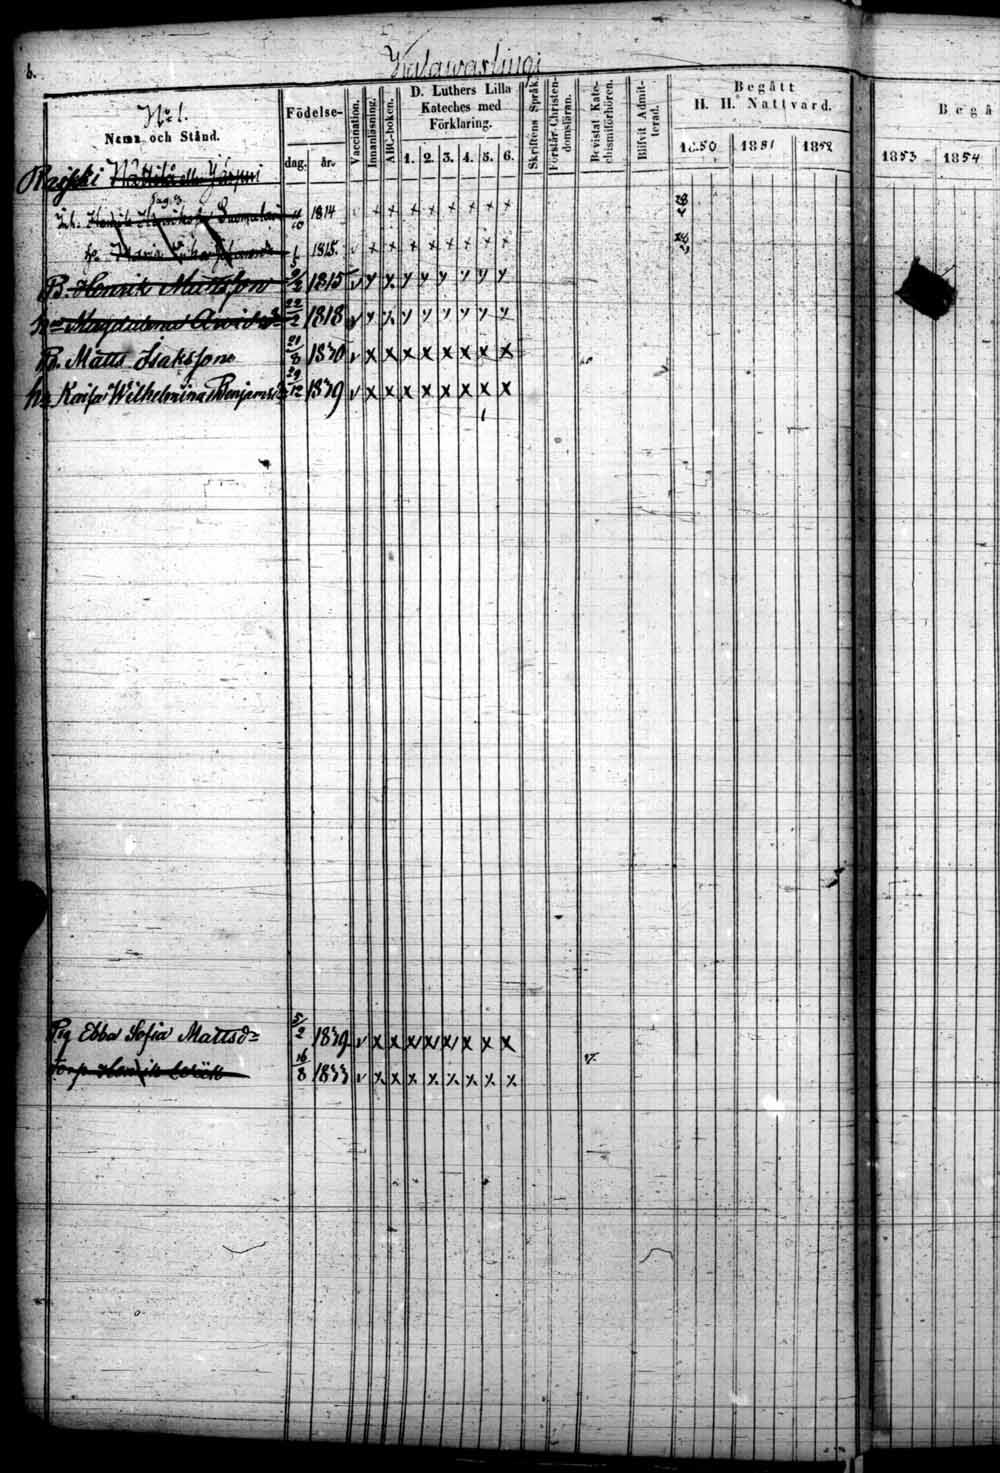 6.
N:o 1.
Namn och Stånd.
Födelse-
dag. år.
Vaccination.
Innanläsning.
ABC-boken.
D. Luthers Lilla
Kateches med
Förklaring.
1. 2. 3. 4. 5. 6.
Skriftens Språk.
Förstår Christen-
domsförsn.
Bevistat Kate-
chismiförhören.
Blifvit Admit-
terad.
Begått
H. H. Nattvard.
1850 1851 1852
Begå
1853 1854
Mattila eller
pag. 3
Henrik 1814 + + + + + + + +
Maria 1815. + + + + + + + +
B. Henrik Mattsson 1815 v y y y y y y y y
Magdalena Arvids 22/2 1818 v y y y y y y y y
B. Matts Isaksson 21/8 1830 v x x x x x x x x
h. Kaisa Wilhelmina Benjamsd 29/12 1839 v x x x x x x x x
Pig Ebba Sofia Mattsdr 5/2 1839 v x x x x x x x x
Torp Henrik 16/8 1833 v x x x x x x x x